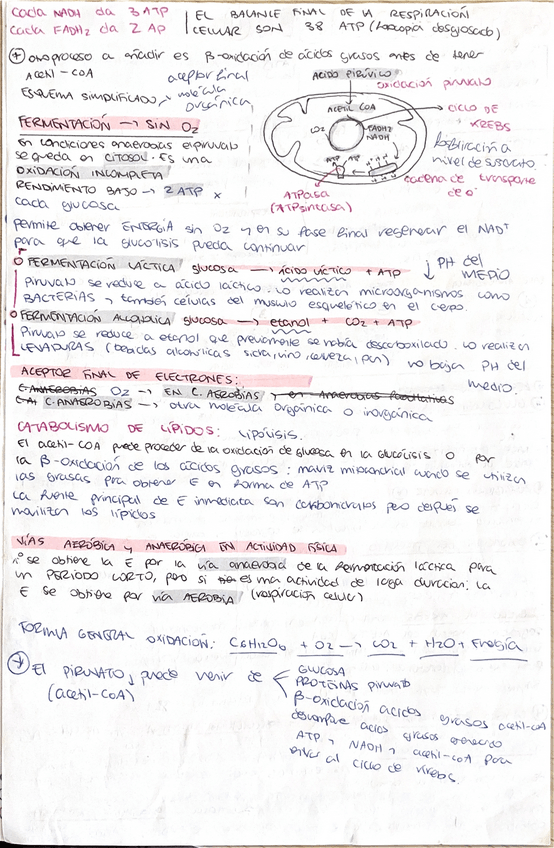 cada NADH da 3 ATP
cada FADH2 da 2 AP
EL BALANCE FINAL DE LA RESPIRACIÓN
CELULAR SON 38 ATP (fotocopia desglosado)
otro proceso a añadir es β-oxidación de ácidos grasos antes de tener
Acetil-CoA
aceptor final
molécula
orgánica
ESQUEMA SIMPLIFICADO
ÁCIDO PIRÚVICO
oxidación piruvato
ACETIL COA
CICLO DE
KREBS
CO2
FADH2
NADH
fosforilación a
nivel de sustrato.
ATP
ATP
cadena de transporte
de e-
ATPasa
(ATPsintasa)
FERMENTACIÓN → SIN O2
En condiciones anaerobias el piruvato
se queda en CITOSOL. Es una
OXIDACIÓN INCOMPLETA
RENDIMIENTO BAJO → 2 ATP x
cada glucosa
permite obtener ENERGÍA sin O2 y en su fase final regenerar el NAD+
para que la glucólisis pueda continuar
FERMENTACIÓN LÁCTICA glucosa → ácido láctico + ATP
↓ PH del
MEDIO
Piruvato se reduce a ácido láctico. Lo realizan microorganismos como
BACTERIAS y también células del musculo esquelético en el cuerpo.
FERMENTACIÓN ALCOHÓLICA glucosa → etanol + CO2 + ATP
Piruvato se reduce a etanol que previamente se había descarboxilado. Lo realizan
LEVADURAS (bebidas alcohólicas sidra, vino, cerveza, pan) no baja PH del
medio.
ACEPTOR FINAL DE ELECTRONES:
C. ANAEROBIAS O2 → EN C. AEROBIAS y en Anaerobias facultativas
C.A. C. ANAEROBIAS → otra molécula orgánica o inorgánica
CATABOLISMO DE LÍPIDOS: Lipólisis.
El acetil-COA puede proceder de la oxidación de glucosa en la glucólisis o por
la β-oxidación de los ácidos grasos: matriz mitocondrial cuando se utilizan
las grasas para obtener E en forma de ATP
La fuente principal de E inmediata son carbohidratos pero después se
movilizan los lípidos
VÍAS AERÓBICA Y ANAERÓBICA EN ACTIVIDAD FÍSICA
1º se obtiene la E por la vía anaerobia de la fermentación láctica para
un PERÍODO CORTO, pero si es una actividad de larga duración: la
E se obtiene por vía AEROBIA (respiración celular)
FORMULA GENERAL OXIDACIÓN: C6H12O6 + O2 → CO2 + H2O + Energía
El PIRUVATO, puede venir de
(acetil-CoA)
GLUCOSA
PROTEÍNAS piruvato
β-oxidación acidos grasos acetil-COA
descompone acidos grasos
ATP, NADH, acetil-COA para
entrar al ciclo de Krebs.